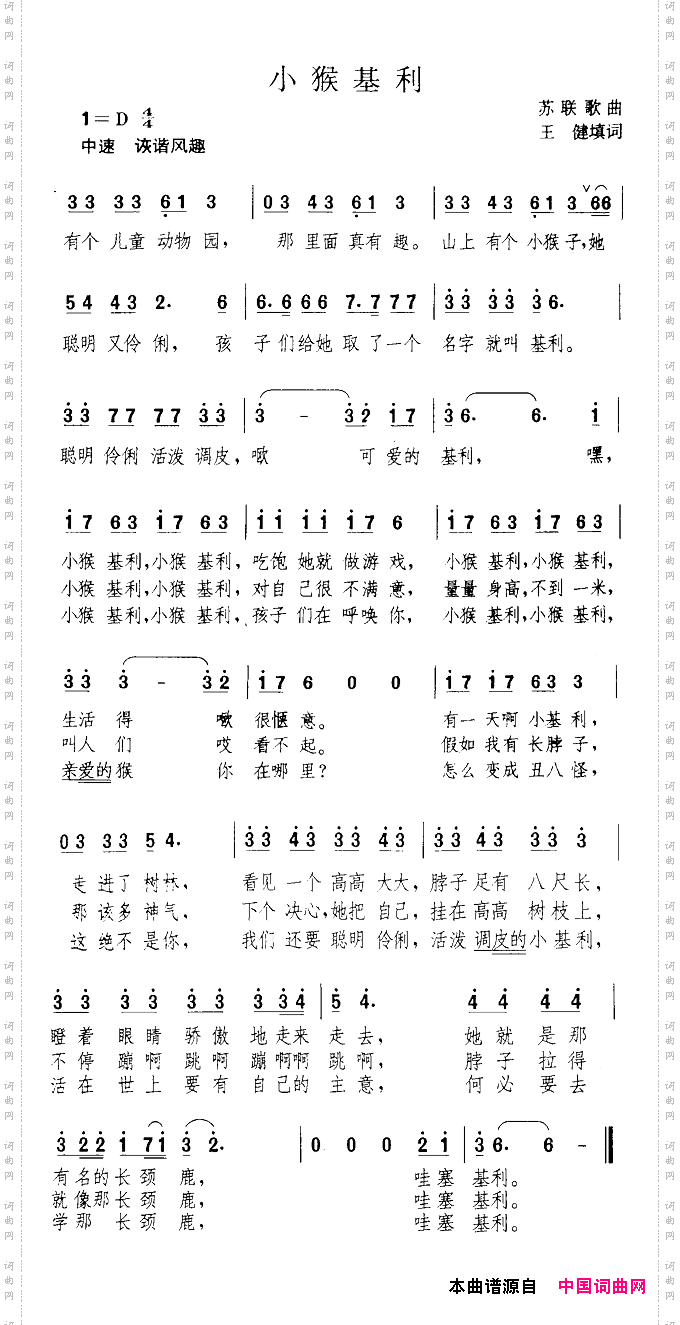 小猴基利
1=D 4/4
苏联歌曲
王 健填词
中速 诙谐风趣
3 3 3 3 6 1 3 | 0 3 4 3 6 1 3 | 3 3 4 3 6 1 3 6 6 |
有个 儿童 动物 园, 那 里面 真有 趣。 山上 有个 小猴子,她
5 4 4 3 2. 6 | 6. 6 6 6 7. 7 7 7 | 3 3 3 3 3 6. |
聪明 又伶 俐, 孩 子 们给她 取 了一个 名字 就叫 基利。
3 3 7 7 7 7 3 3 | 3 - 3 2 1 7 | 3 6. 6. 1 |
聪明 伶俐 活泼 调皮,噉 可 爱的 基利, 嘿,
1 7 6 3 1 7 6 3 | 1 1 1 1 1 7 6 | 1 7 6 3 1 7 6 3 |
小猴 基利,小猴 基利,吃饱 她就 做游 戏, 小猴 基利,小猴 基利,
小猴 基利,小猴 基利,对自 己很 不满 意, 量量 身高,不到 一米,
小猴 基利,小猴 基利,孩子 们在 呼唤 你, 小猴 基利,小猴 基利,
3 3 3 - 3 2 | 1 7 6 0 0 | 1 7 1 7 6 3 3 |
生活 得 噉 很惬 意。 有一 天啊 小基 利,
叫人 们 哎 看不 起。 假如 我有 长脖 子,
亲爱的猴 你 在哪 里? 怎么 变成 丑八 怪,
0 3 3 3 5 4. | 3 3 4 3 3 3 4 3 | 3 3 4 3 3 3 3 |
走 进了 树林, 看见 一个 高高 大大,脖子 足有 八尺 长,
那 该多 神气, 下个 决心,她把 自己,挂在 高高 树枝 上,
这 绝不 是你, 我们 还要 聪明 伶俐,活泼 调皮的 小基 利,
3 3 3 3 3 3 3 3 4 | 5 4. 4 4 4 4
瞪着 眼睛 骄傲 地走来 走去, 她就 是那
不停 蹦啊 跳啊 蹦啊啊 跳啊, 脖子 拉得
活在 世上 要有 自己的 主意, 何必 要去
3 2 2 1 7 1 3 2. | 0 0 0 2 1 | 3 6. 6 - ‖
有名的 长颈 鹿, 哇塞 基利。
就像那 长颈 鹿, 哇塞 基利。
学那 长颈 鹿, 哇塞 基利。
本曲谱源自 中国词曲网